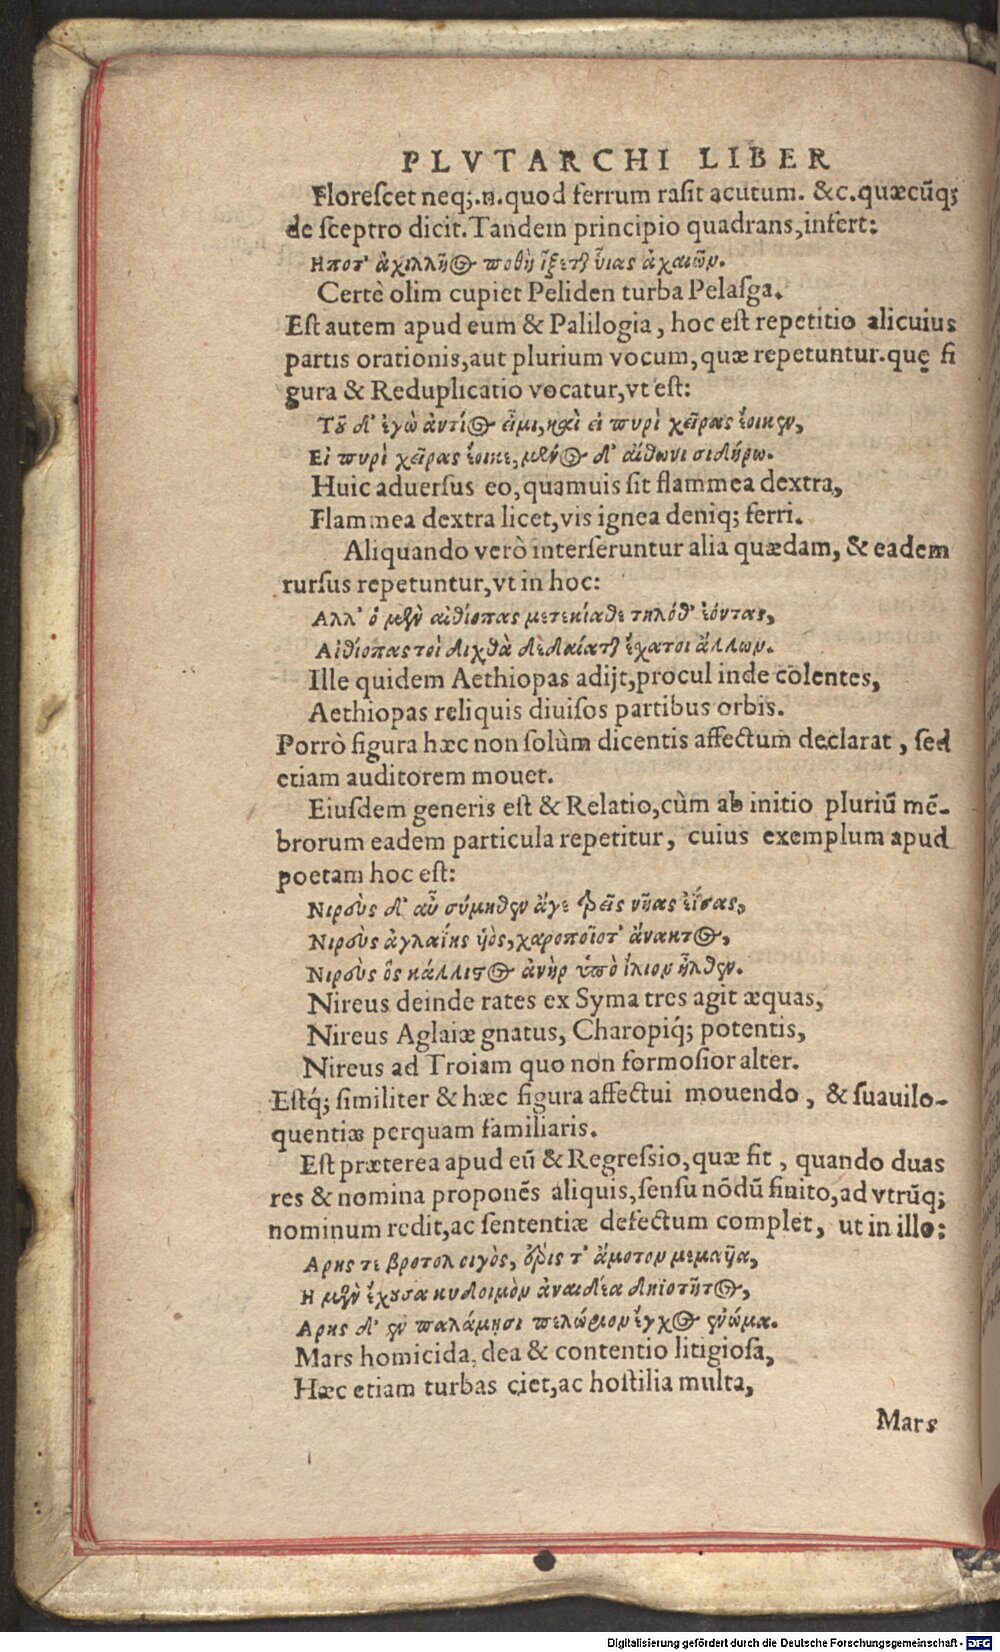 PLVTARCHI LIBER
Florescet neq;.n.quod ferrum rasit acutum. &c.quæcũq;
de sceptro dicit. Tandem principio quadrans, infert:
Ηποτ' ἀχιλλῆος ποθὴ ἵξεται ὗιας ἀχαιῶν.
Certè olim cupiet Peliden turba Pelasga.
Est autem apud eum & Palilogia, hoc est repetitio alicuius
partis orationis, aut plurium vocum, quæ repetuntur. quę fi
gura & Reduplicatio vocatur, vt est:
Τοῦ δ' ἐγὼ ἀντίος εἶμι, καὶ εἰ πυρὶ χεῖρας ἔοικεν,
Εἰ πυρὶ χεῖρας ἔοικε, μένος δ' αἴθωνι σιδήρω.
Huic aduersus eo, quamuis sit flammea dextra,
Flammea dextra licet, vis ignea deniq; ferri.
Aliquando verò interseruntur alia quædam, & eadem
rursus repetuntur, vt in hoc:
Αλλ' ὁ μὲν αἰθίοπας μετεκίαθε τηλόθ' ἐόντας,
Αἰθίοπας τοὶ διχθὰ δεδαίαται ἔχατοι ἄλλων.
Ille quidem Aethiopas adijt, procul inde colentes,
Aethiopas reliquis diuisos partibus orbis.
Porrò figura hæc non solùm dicentis affectum declarat, sed
etiam auditorem mouet.
Eiusdem generis est & Relatio, cùm ab initio pluriũ mē-
brorum eadem particula repetitur, cuius exemplum apud
poetam hoc est:
Νιρεὺς δ' αὖ σύμηθεν ἄγε τρεῖς νῆας ἐΐσας,
Νιρεὺς ἀγλαΐης ὑὸς, χαροποῖοτ' ἄνακτος,
Νιρεὺς ὃς κάλλιστος ἀνὴρ ὑπὸ ἴλιον ἦλθεν.
Nireus deinde rates ex Syma tres agit æquas,
Nireus Aglaiæ gnatus, Charopiq́; potentis,
Nireus ad Troiam quo non formosior alter.
Estq́; similiter & hæc figura affectui mouendo, & suauilo-
quentiæ perquam familiaris.
Est præterea apud eũ & Regressio, quæ fit, quando duas
res & nomina proponēs aliquis, sensu nōdũ finito, ad vtrũq;
nominum redit, ac sententiæ defectum complet, ut in illo:
Αρης τε βροτολοιγὸς, ἔρις τ' ἄμοτον μεμαῦα,
Η μὲν ἔχουσα κυδοιμὸν ἀναιδέα δηϊοτῆτος,
Αρης δ' ἐν παλάμῃσι πελώριον ἔγχος ἐνώμα.
Mars homicida, dea & contentio litigiosa,
Hæc etiam turbas ciet, ac hostilia multa,
Mars
Digitalisierung gefördert durch die Deutsche Forschungsgemeinschaft - DFG